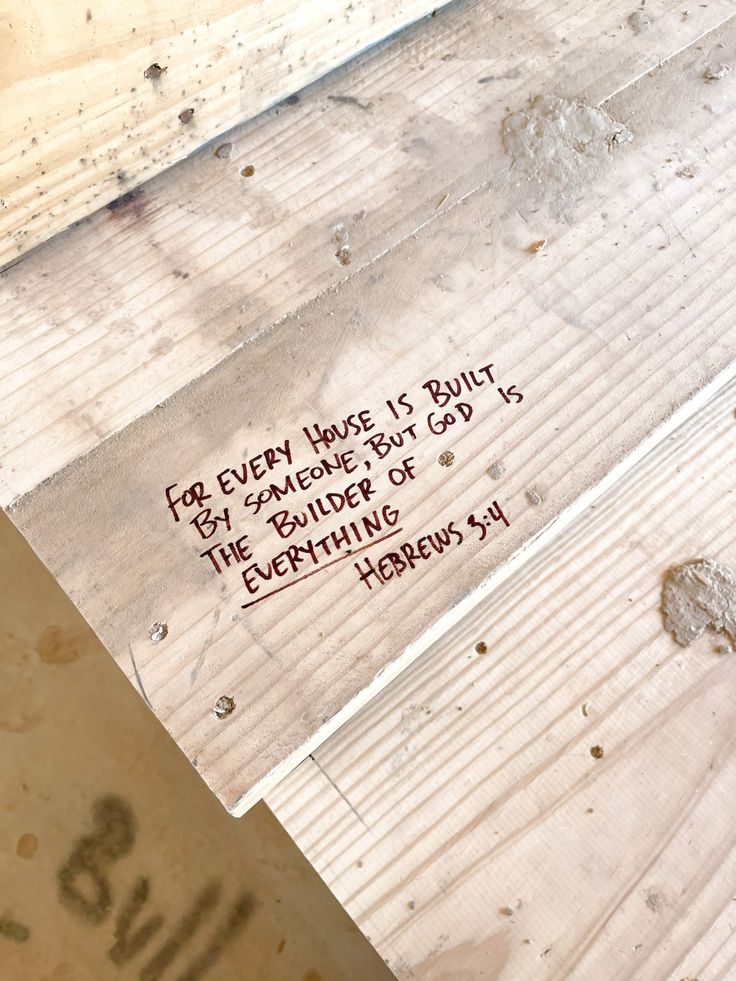 FOR EVERY HOUSE IS BUILT
BY SOMEONE, BUT GOD IS
THE BUILDER OF
EVERYTHING
HEBREWS 3:4